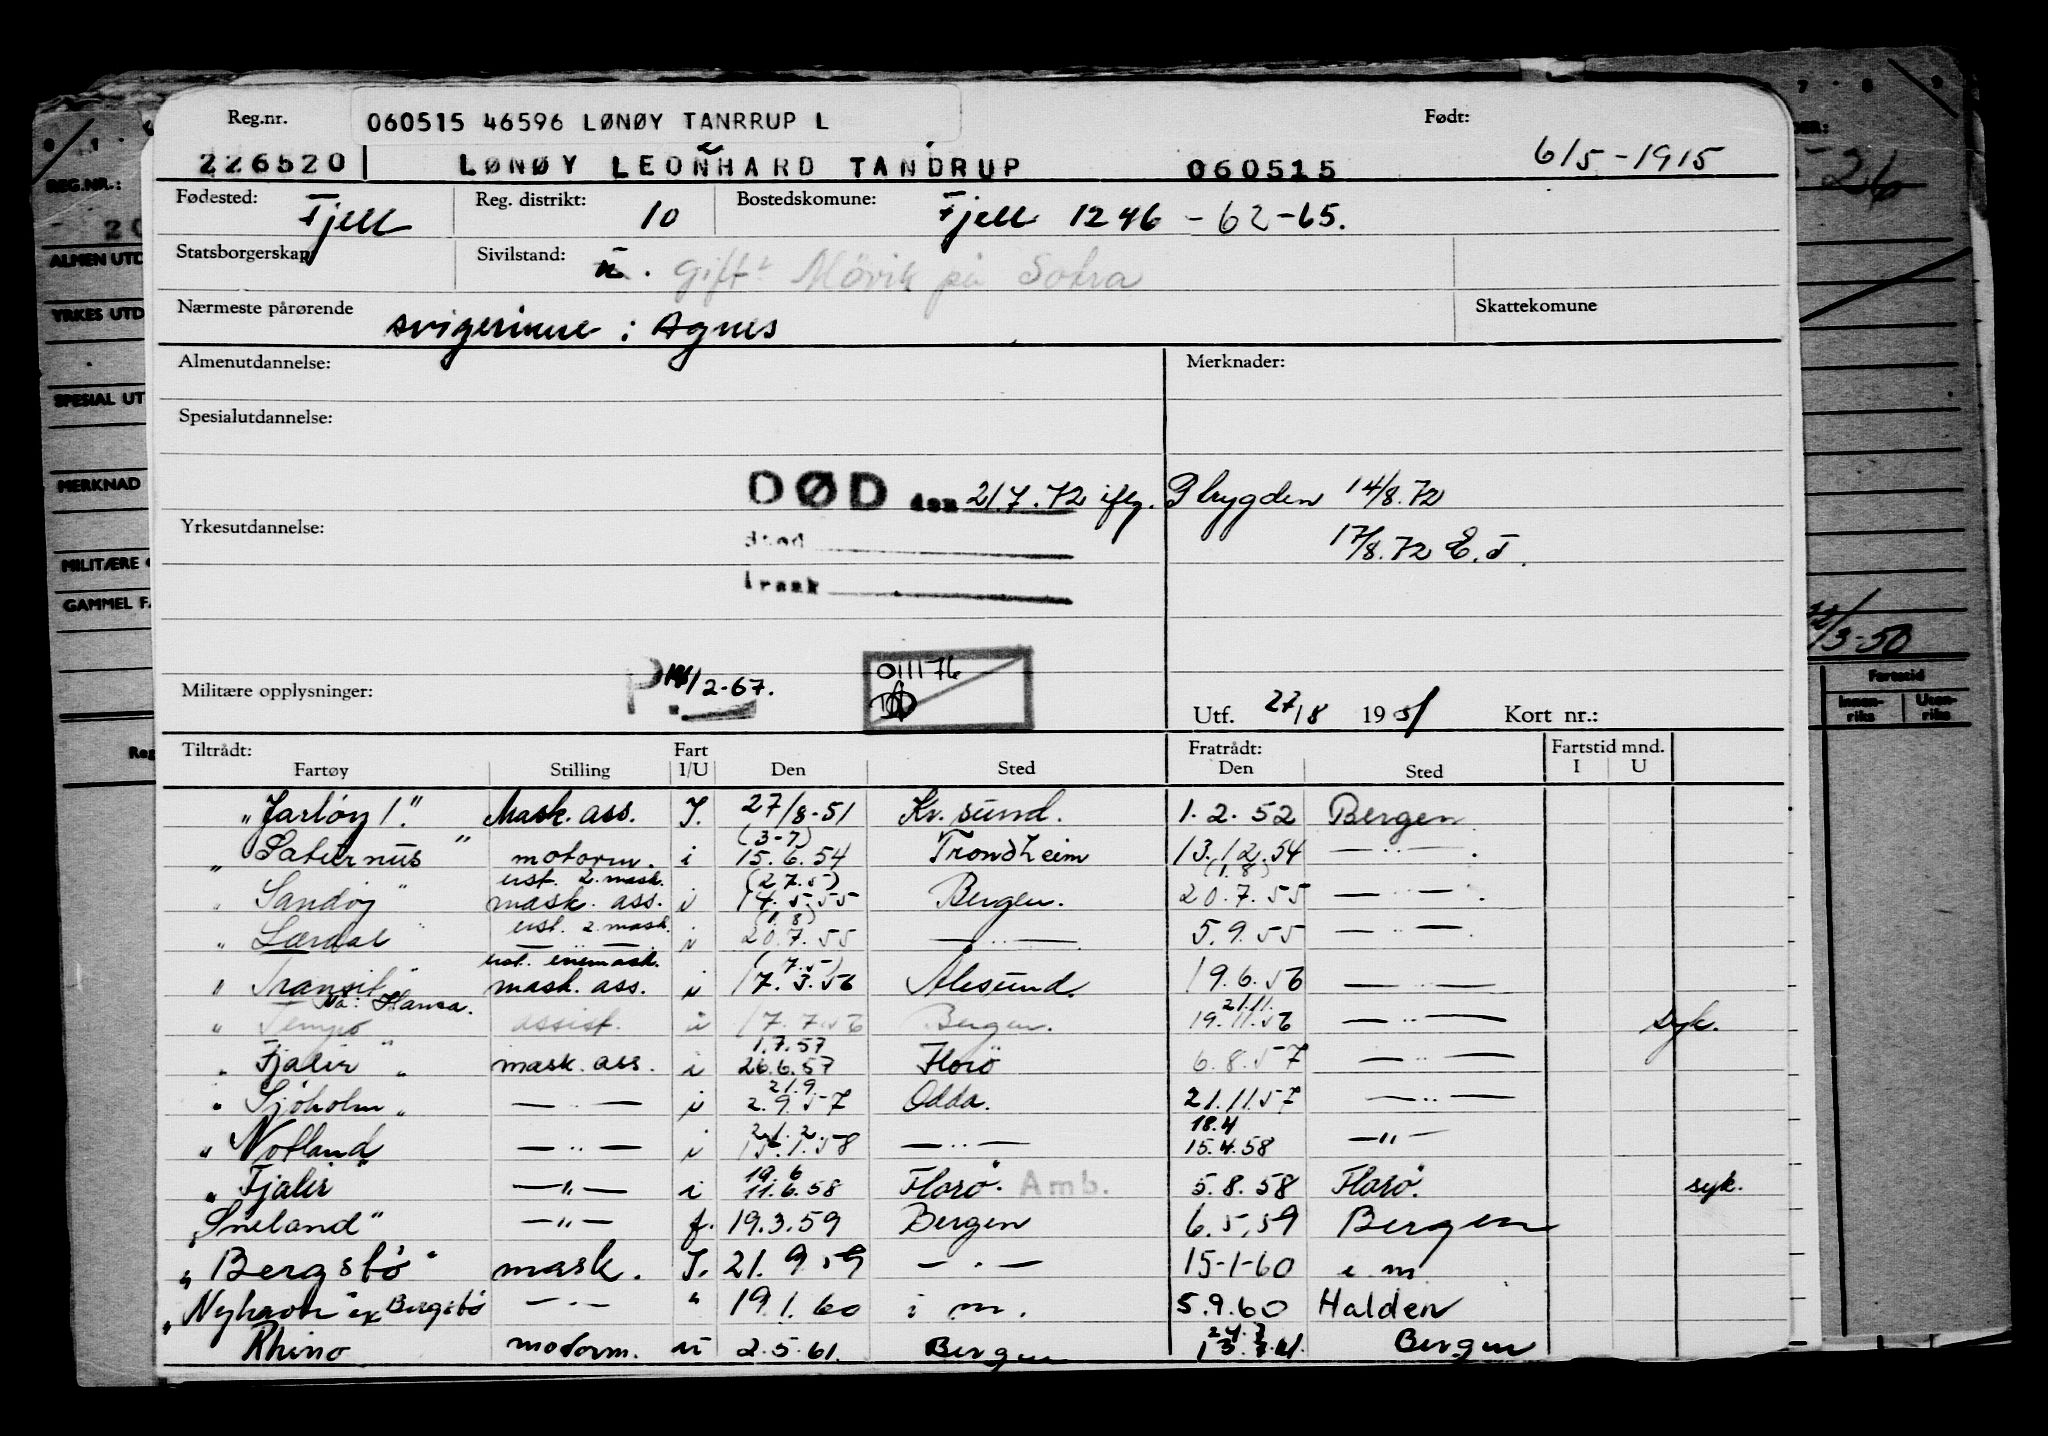 Reg.nr. 060515 46596 LØNØY TANRRUP L Født:
226520 LØNØY LEONHARD TANDRUP 060515 6/5-1915
Fødested: Fjell Reg. distrikt: 10 Bostedskomune: Fjell 1246 - 62-65.
Statsborgerskap: Sivilstand: Gift Mövik på Sotra
Nærmeste pårørende svigerinne: Agnes Skattekomune
Almenutdannelse: Merknader:
Spesialutdannelse:
DØD den 21.7.72 iflg. 14/8.72
Yrkesutdannelse: 17/8.72 E.T.
011176
Militære opplysninger: P 2-67.
Utf. 27/8 1951 Kort nr.:
Tiltrådt: Fart Fratrådt: Fartstid mnd.
Fartøy Stilling I/U Den Sted Den Sted I U
"Jarlöy 1." Mask. ass. I. 27/8-51 Kr. sund. 1.2.52 Bergen
(3-7)
"Saturnus" motorm. i 15.6.54 Trondheim 13.12.54 — " — .
ust. 2. mask. (27.5) (1.8)
"Sandöy" mask. ass. i 14.5.55 Bergen. 20.7.55 — " — .
(1.8)
"Lærdal" ust. 2. mask. i 20.7.55 — " — 5.9.55 — " —
ust. enemask. (7.5)
"Transit" mask. ass. i 17.3.56 Ålesund. 19.6.56 — " —
Nå: Hansa. 21.11.
"Tempo assist. u 17.7.56 Bergen. 19.11.56 — " — syk.
1.7.57
"Fjalir" mask. ass. i 26.6.57 Florö 6.8.57 — " —
21.9
"Sjöholm" — " — i 2.9.57 Odda. 21.11.57 — " —
18.4
"Notland — " — i — " — 15.4.58 — " —
19.6
"Fjalir" — " — i 11.6.58 Florö. Amb. 5.8.58 Florö. syk.
"Sneland" — " — f. 19.3.59 Bergen 6.5.59 Bergen
"Bergsbö" mask. I. 21.9.59 — " — 15-1-60 i. m.
"Nyhavn" ex Bergsbö — " — " 19.1.60 i m. 5.9.60 Halden
Rhino motorm. u 2.5.61. Bergen Bergen
REG.NR.:
ALMEN UTD
YRKES UTD
SPESIAL UT
MERKNAD
MILITÆRE
GAMMEL FA
Reg
/3-50
Fartstid
Innen-riks Uten-riks